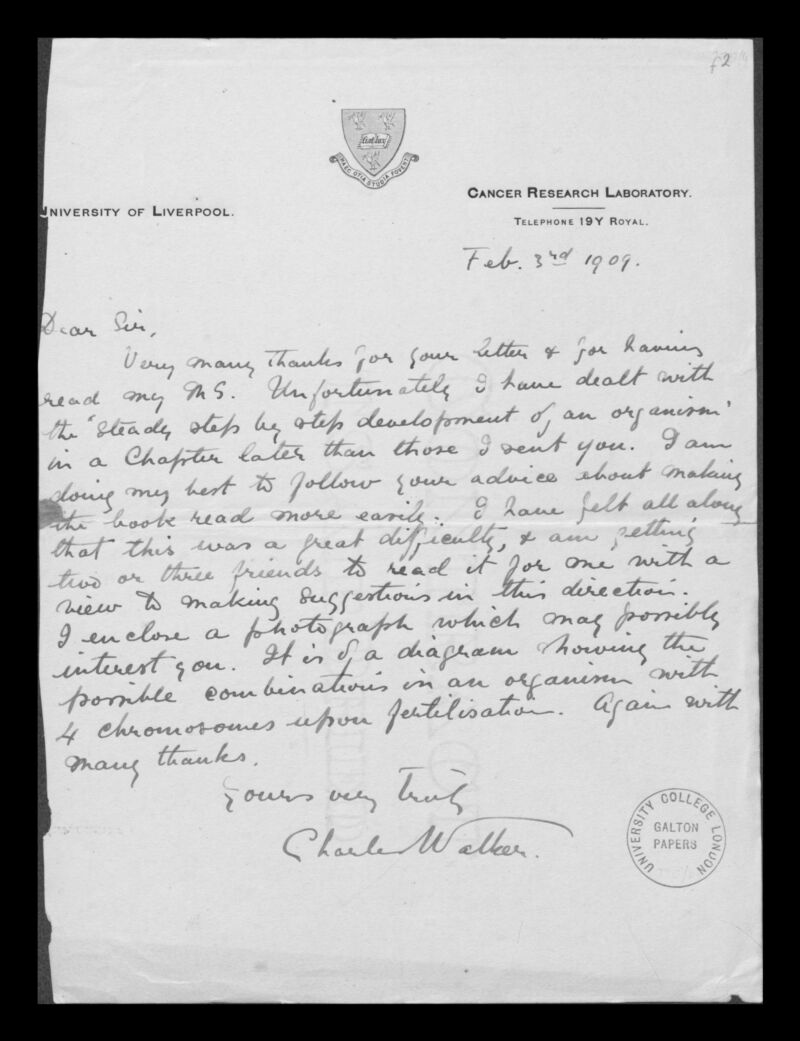 f2
Fiat Lux
HAEC OTIA STUDIA FOVENT
UNIVERSITY OF LIVERPOOL.
CANCER RESEARCH LABORATORY.
TELEPHONE 19Y ROYAL.
Feb. 3rd 1909.
Dear Sir,
Very many thanks for your letter & for having
read my MS. Unfortunately I have dealt with
the "steady step by step development of an organism"
in a Chapter later than those I sent you. I am
doing my best to follow your advice about making
the book read more easily. I have felt all along
that this was a great difficulty, & am getting
two or three friends to read it for me with a
view to making suggestions in this direction.
I enclose a photograph which may possibly
interest you. It is of a diagram showing the
possible combinations in an organism with
4 chromosomes upon fertilisation. Again with
many thanks.
Yours very truly
Charles Walker.
UNIVERSITY COLLEGE LONDON
GALTON
PAPERS